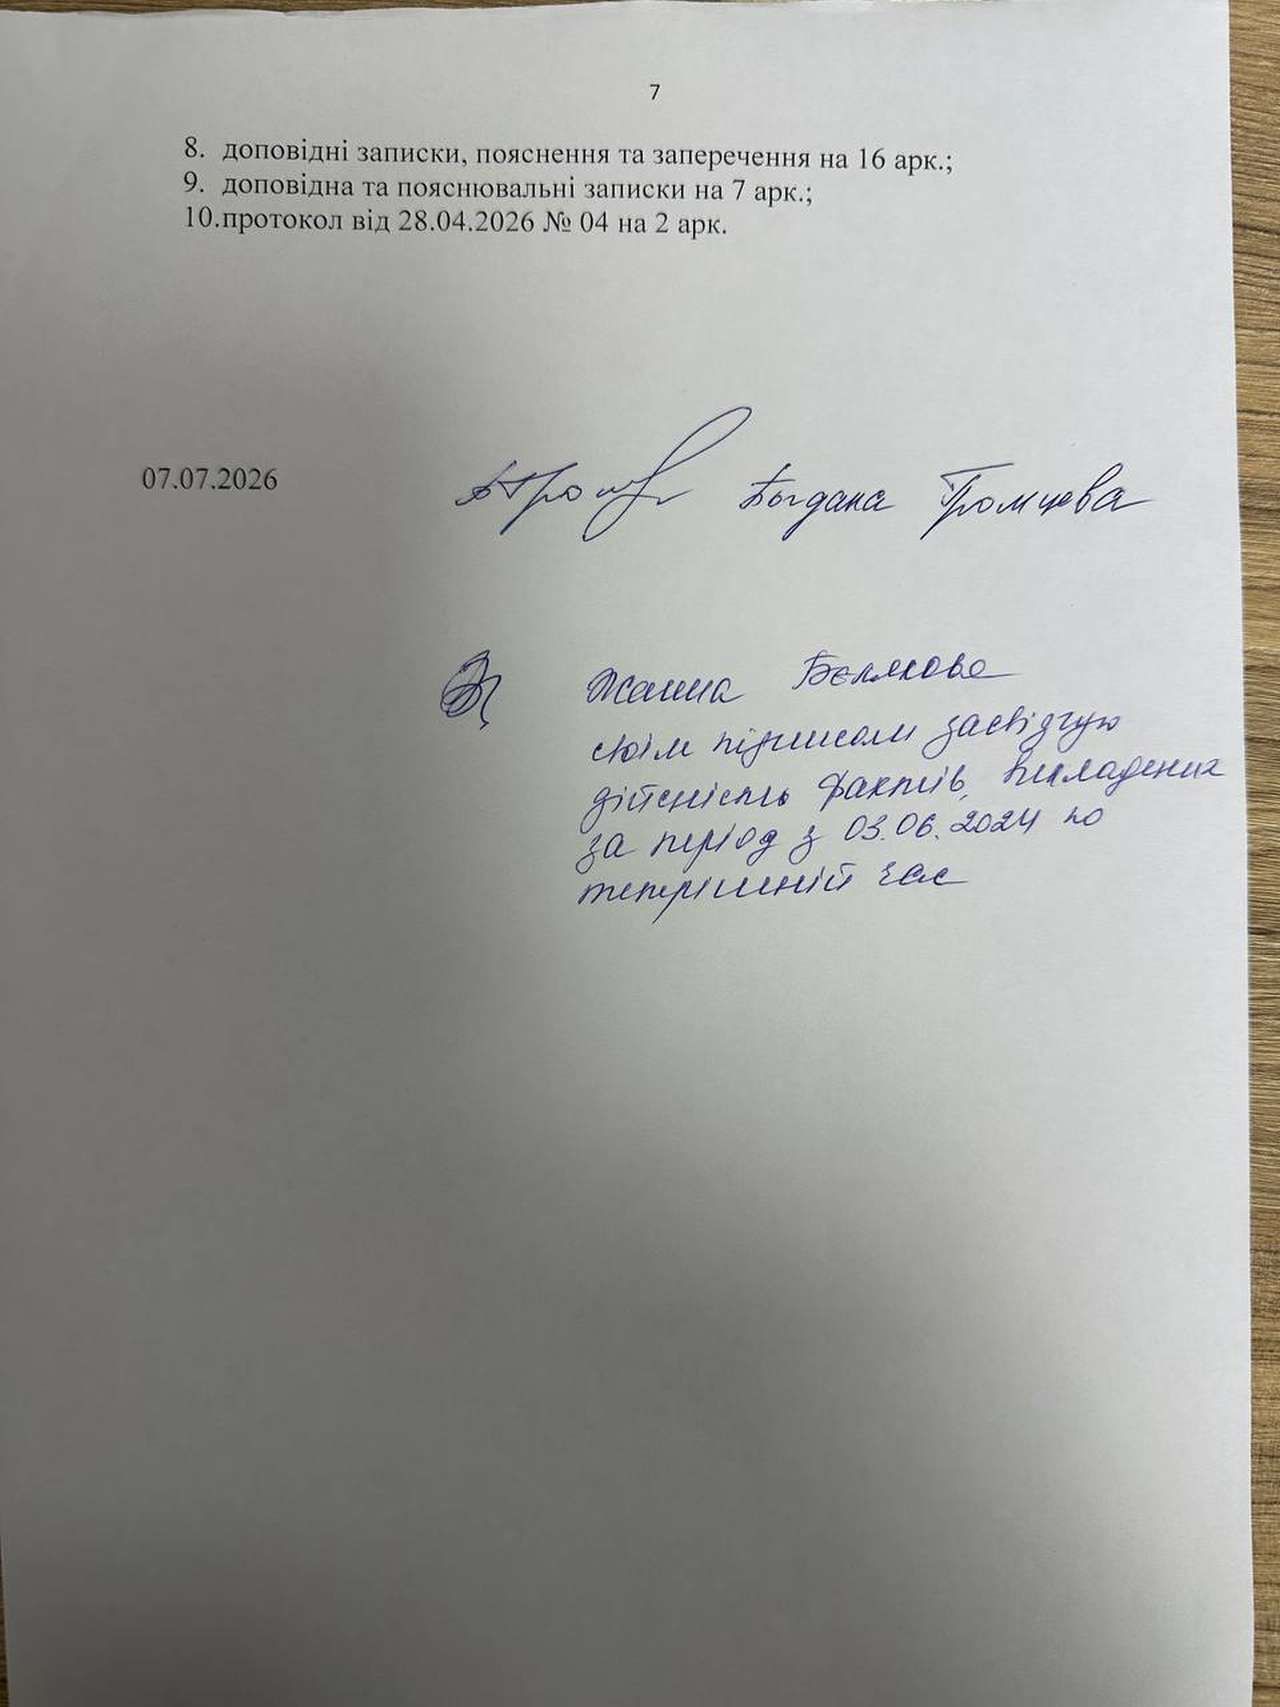 7
8. доповідні записки, пояснення та заперечення на 16 арк.;
9. доповідна та пояснювальні записки на 7 арк.;
10.протокол від 28.04.2026 № 04 на 2 арк.
07.07.2026 Богдана Громцева
Жанна Бєлякова
своїм підписом засвідчую
дійсність фактів, викладених
за період з 03.06.2024 по
теперішній час